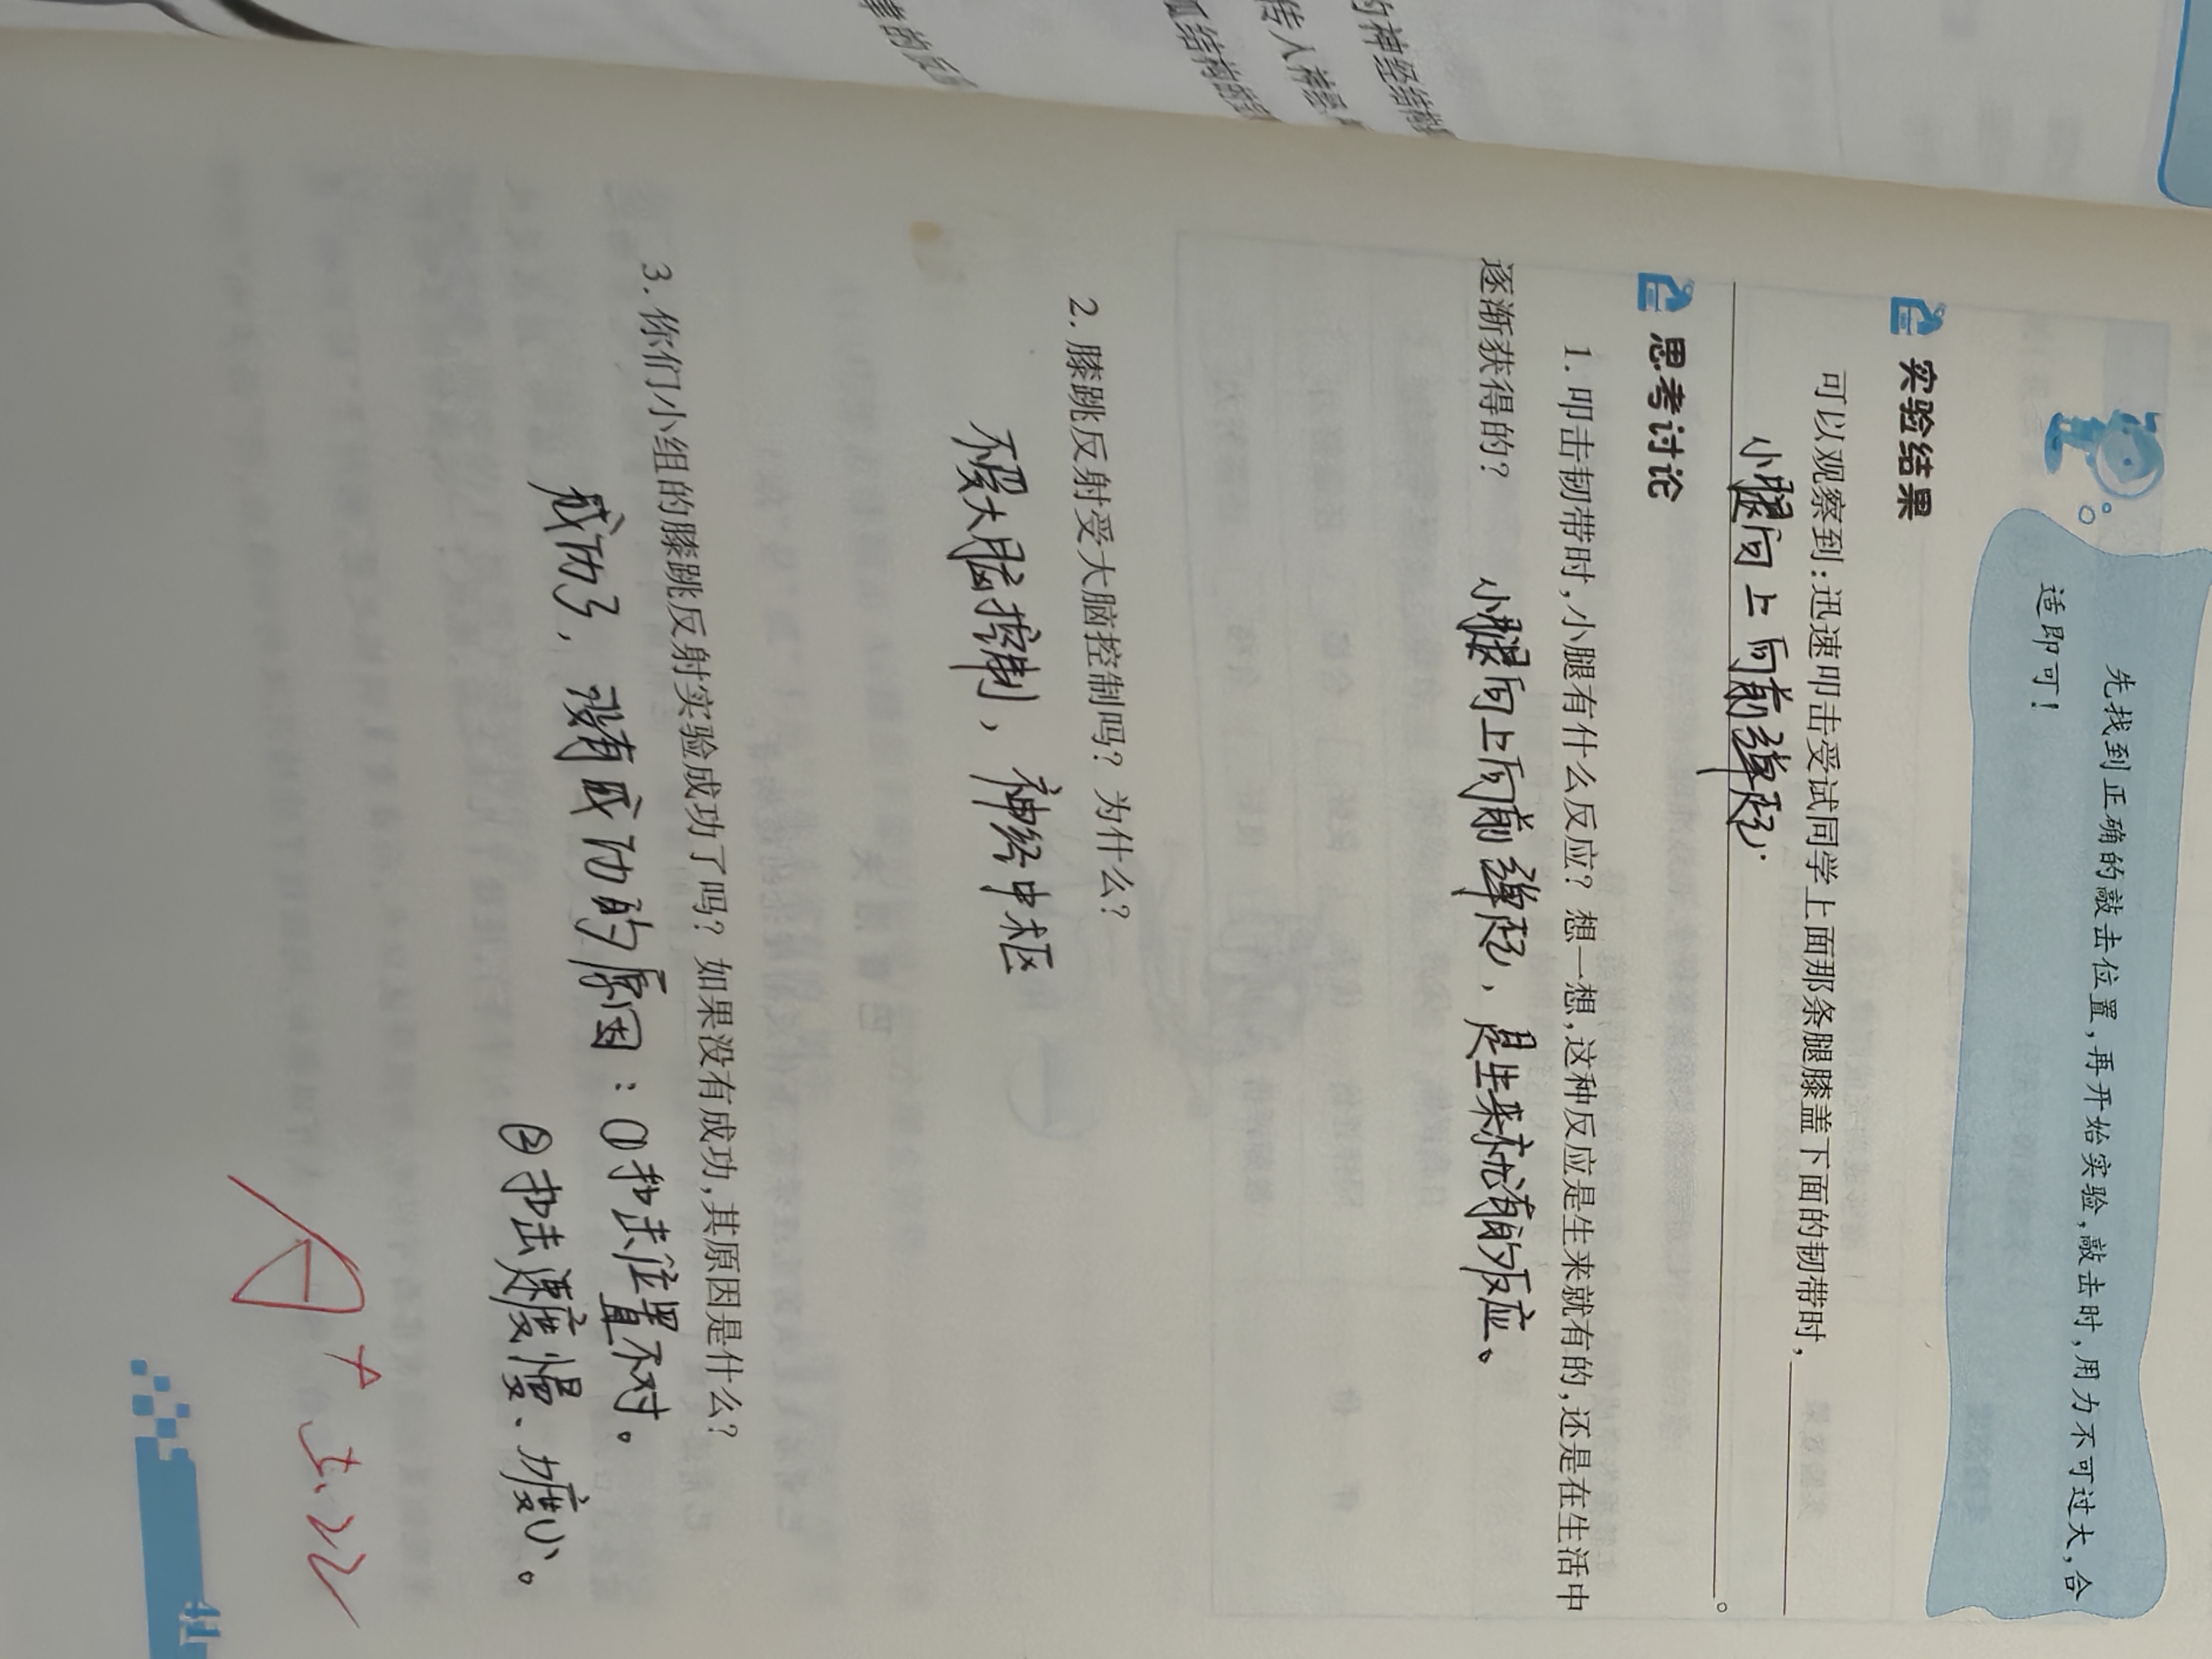 先找到正确的敲击位置,再开始实验,敲击时,用力不可过大,合
适即可!
实验结果
可以观察到:迅速叩击受试同学上面那条腿膝盖下面的韧带时,
小腿向上向前弹起.
。
思考讨论
1. 叩击韧带时,小腿有什么反应?想一想,这种反应是生来就有的,还是在生活中
逐渐获得的?
小腿向上向前弹起,是生来就有的反应。
2. 膝跳反射受大脑控制吗?为什么?
不受大脑控制,神经中枢
3. 你们小组的膝跳反射实验成功了吗?如果没有成功,其原因是什么?
成功了,没有成功的原因:①扣击位置不对。
②扣击速度慢、力度小。
A+ 5.22
41
的神经结构
传入神经
弧结构的
的反